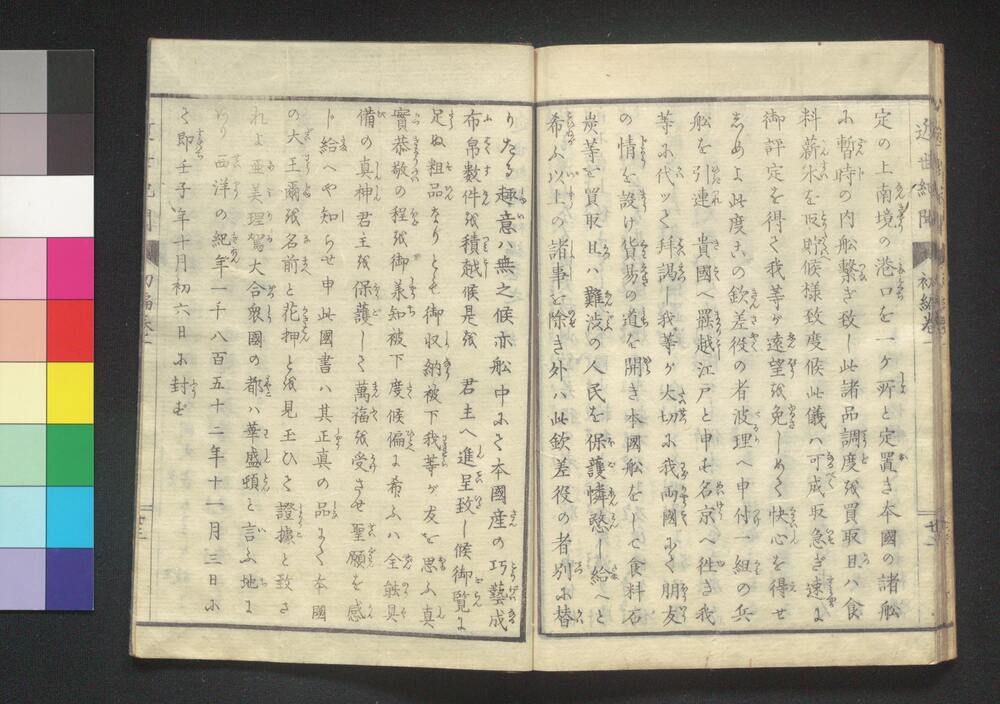 定の上南境の港口を一ケ所と定置き本國の諸舩
小暫時の内舩繋ぎ致し此諸品調度を買取且ハ食
料薪水を取貯候様致度候此儀ハ可成取急ぎ速に
御評定を得て我等が遠望を免しめて快心を得せ
しめよ此度この欽差役の者波理へ申付一組の兵
舩を引連 貴國へ罷越江戸と申す名京へ徃き我
等小代ツて拜謁し我等ケ大切に我両國にて朋友
の情を設け貨易の道を開き本國舩をして食料石
炭等を買取且ハ難渋の人民を保護憐愍し給へと
希ふ以上の諸事を除き外ハ此欽差役の者別に替
りたる趣意ハ無之候亦舩中にて本國産の巧藝成
布帛数件を積越候是を 君主へ進呈致し候御覧に
足ぬ粗品なりとも御収納被下我等ケ友を思ふ真
實恭敬の程を御兼知被下度候偏に希ふハ全體具
備の真神君主を保護して萬福を受させ 聖願を感
ト給へや知らせ申此國書ハ其正真の品にて本國
の大王爾を名前と花押とを見玉ひて證據と致さ
れよ亜美理駕大合衆國の都ハ華盛頓と言ふ地に
あり西洋の紀年一千八百五十二年十一月三日小
て即壬子年十月初六日小封ず
近世紀聞 初編巻一